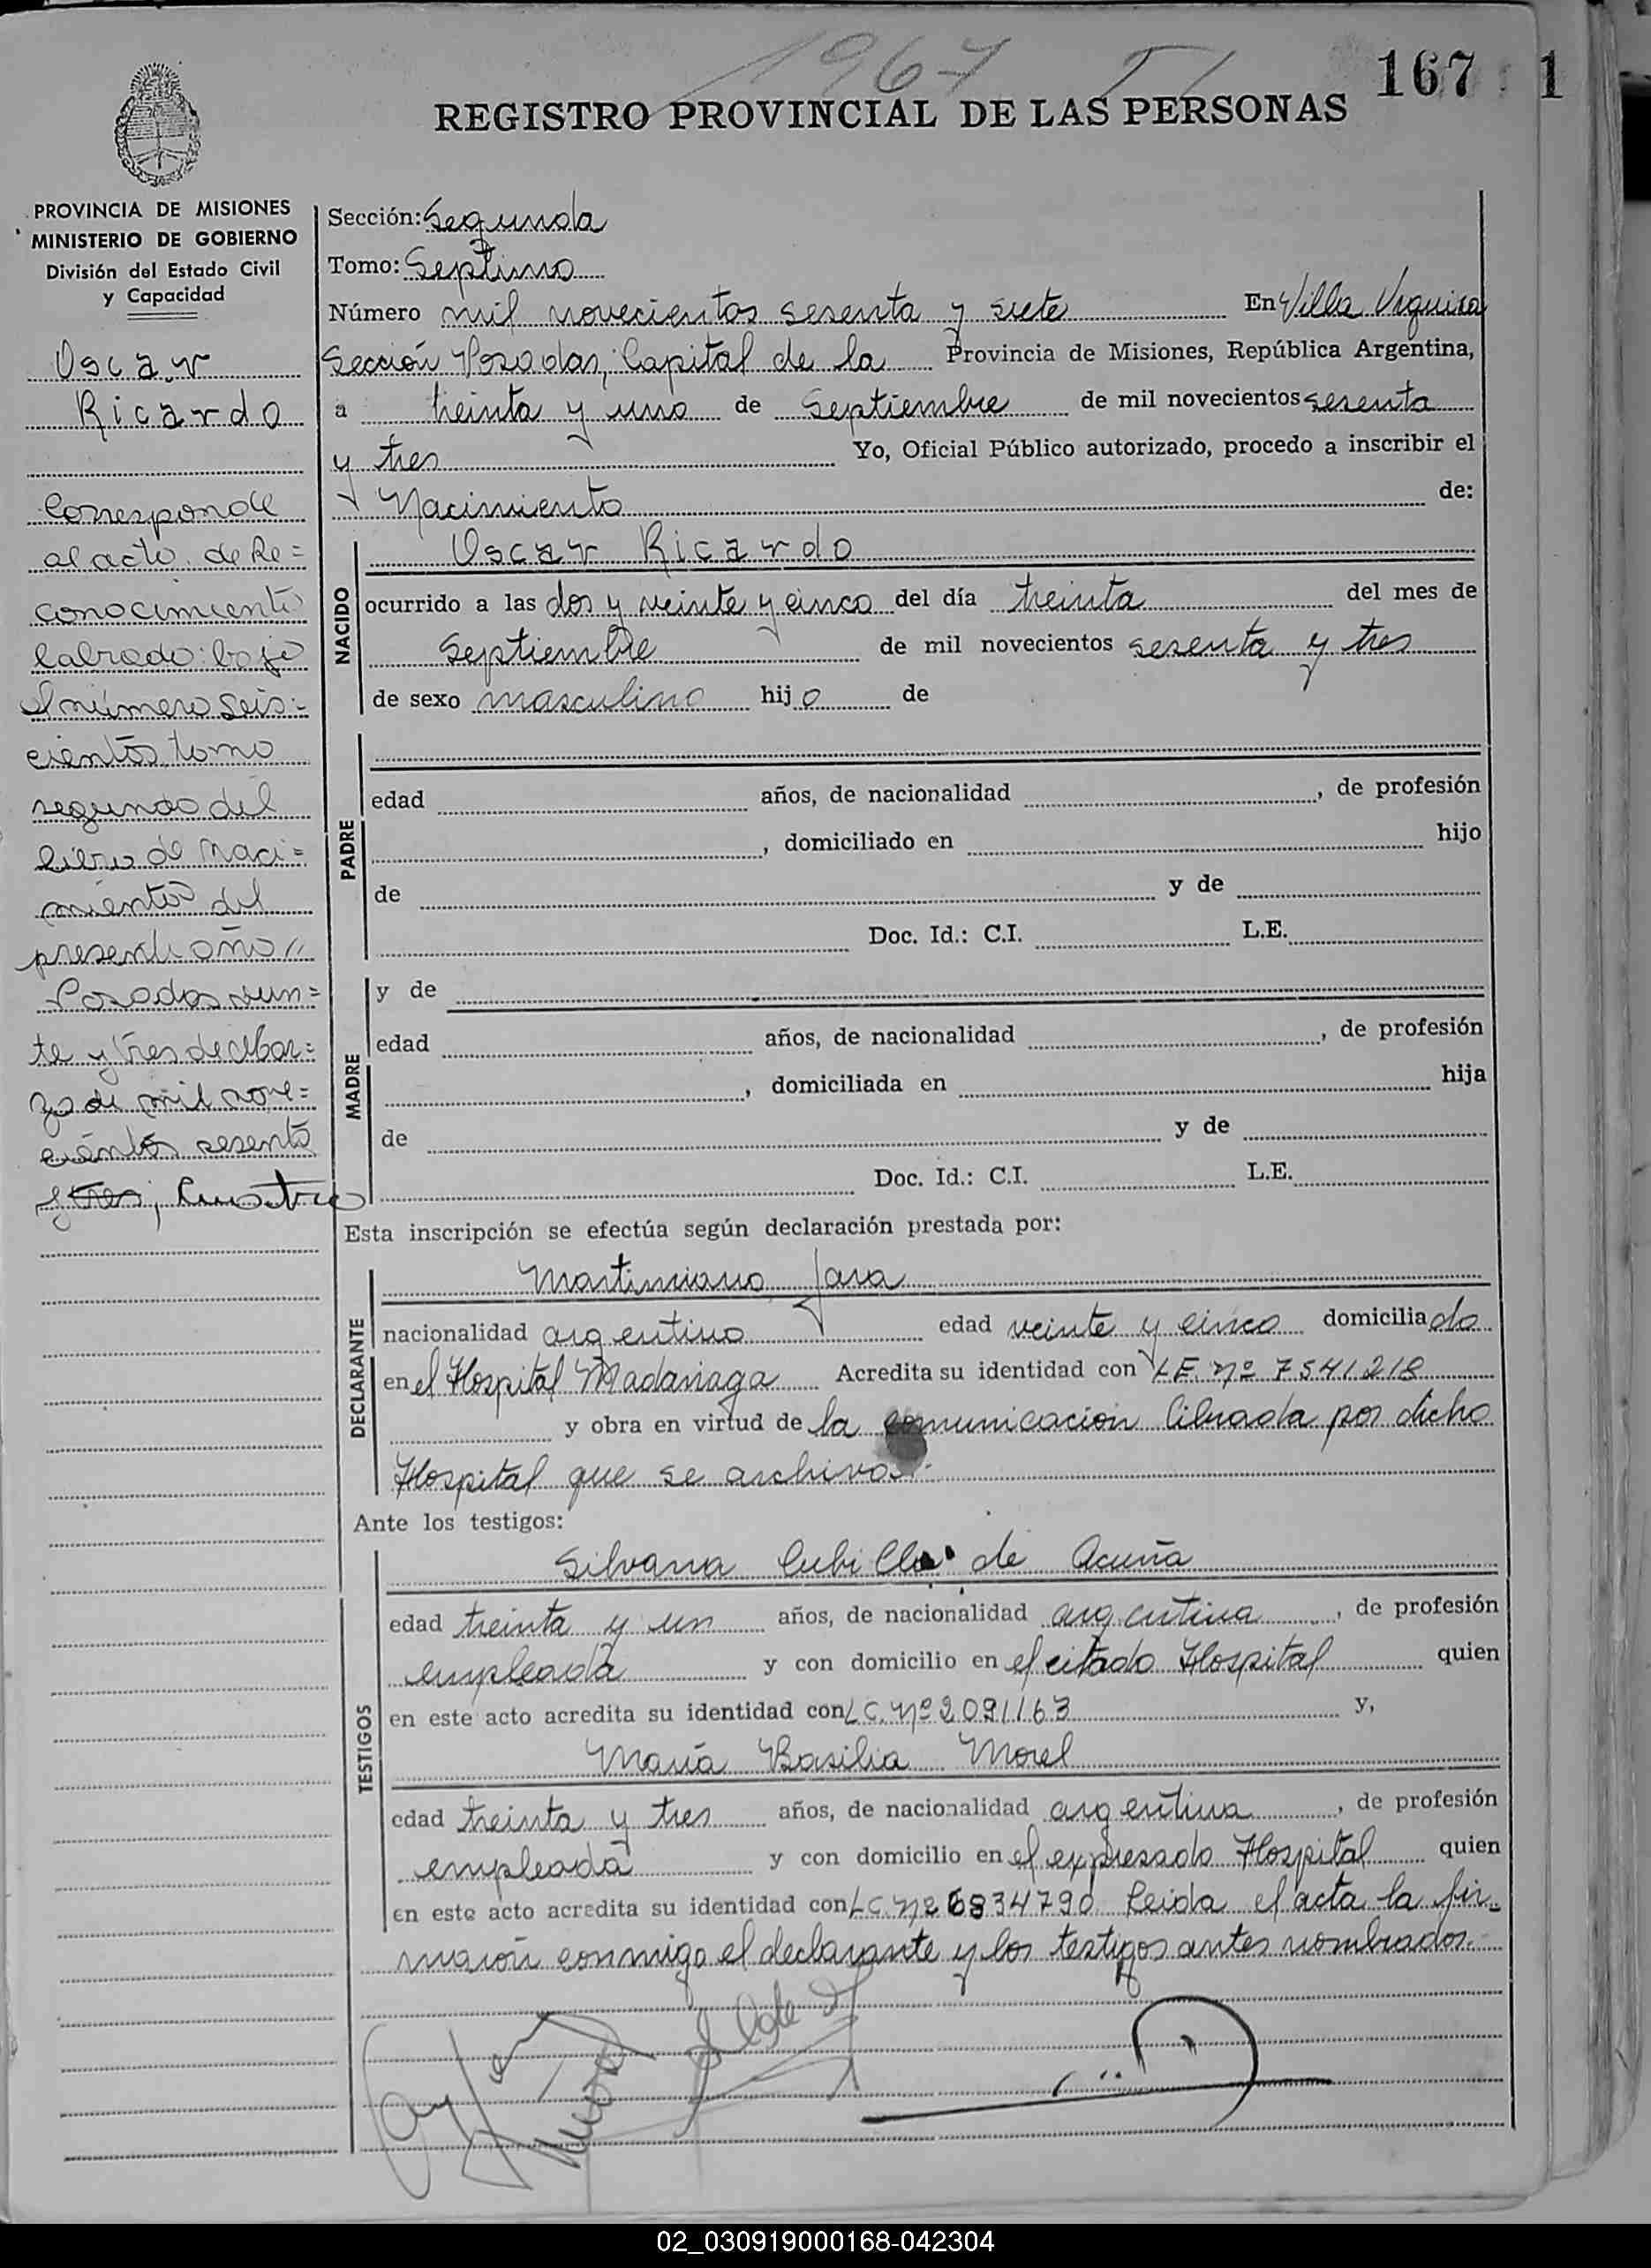 1967 T/
167 1
REGISTRO PROVINCIAL DE LAS PERSONAS
PROVINCIA DE MISIONES
MINISTERIO DE GOBIERNO
División del Estado Civil
y Capacidad
Oscar
Ricardo
Corresponde
al acto de Re=
conocimiento
labrado bajo
el número seis-
cientos, tomo
segundo del
libro de Naci=
mientos del
presente año //
Posadas vein=
te y tres de Mar=
zo de mil nove=
cientos sesenta
y tres, cuatro
Sección: Segunda
Tomo: Septimo
Número mil novecientos sesenta y siete En Villa Urquiza
Sección Posadas, Capital de la Provincia de Misiones, República Argentina,
a treinta y uno de Septiembre de mil novecientos sesenta
y tres Yo, Oficial Público autorizado, procedo a inscribir el
Nacimiento de:
Oscar Ricardo
NACIDO
ocurrido a las dos y veinte y cinco del día treinta del mes de
Septiembre de mil novecientos sesenta y tres
de sexo masculino hijo de
PADRE
edad años, de nacionalidad , de profesión
, domiciliado en hijo
de y de
Doc. Id.: C.I. L.E.
MADRE
y de
edad años, de nacionalidad , de profesión
, domiciliada en hija
de y de
Doc. Id.: C.I. L.E.
Esta inscripción se efectúa según declaración prestada por:
DECLARANTE
Martimiano Jara
nacionalidad argentino edad veinte y cinco domiciliado
en el Hospital Madariaga Acredita su identidad con L.E. Nº 7541218
y obra en virtud de la comunicación librada por dicho
Hospital que se archiva.-
Ante los testigos:
TESTIGOS
Silvana Cubilla de Acuña
edad treinta y un años, de nacionalidad argentina , de profesión
empleada y con domicilio en el citado Hospital quien
en este acto acredita su identidad con L.C. Nº 2091163 y,
María Basilia Morel
edad treinta y tres años, de nacionalidad argentina , de profesión
empleada y con domicilio en el expresado Hospital quien
en este acto acredita su identidad con L.C. Nº 6834790 Leida el acta la fir-
maron conmigo el declarante y los testigos antes nombrados.-
02_030919000168-042304